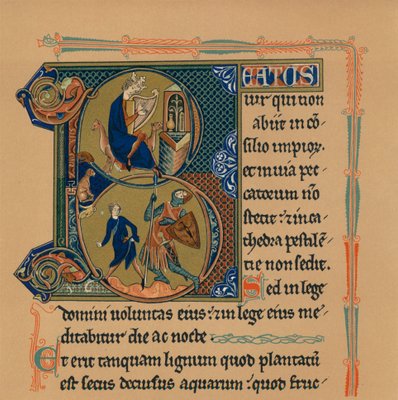 BEATUS
vir qui non
abiit in cō
silio impioꝝ.
et in via pec
catorum nō
stetit: ⁊ in ca
thedra pestilē
tie non sedit.
Sed in lege
domini voluntas eius: ⁊ in lege eius me
ditabitur die ac nocte
Et erit tanquam lignum quod plantatū
est secus decursus aquarum: quod fruc-